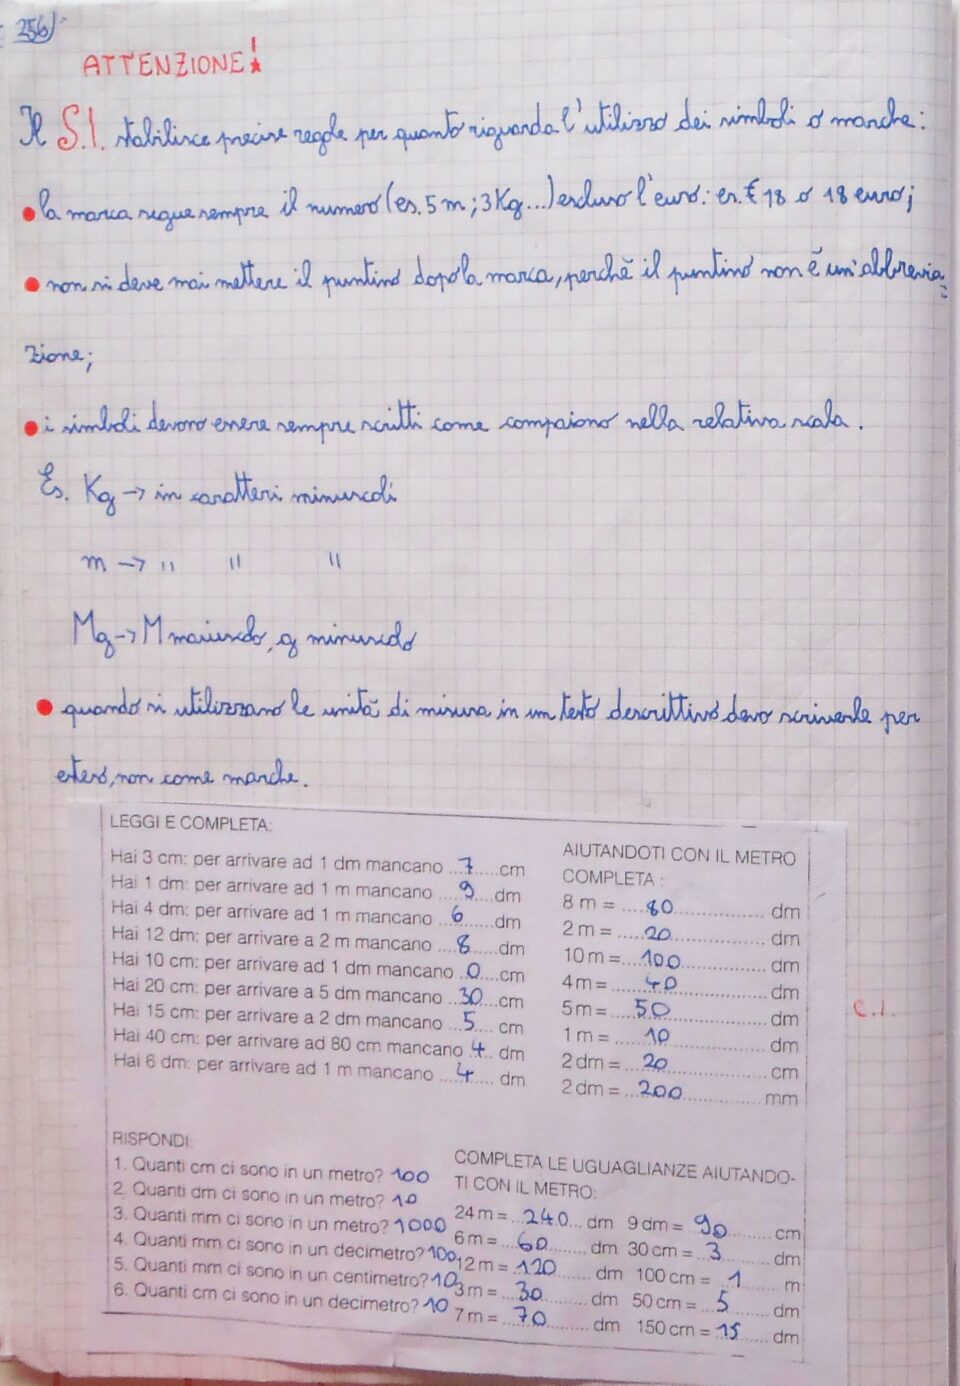 256)
ATTENZIONE!
Il S.I. stabilisce precise regole per quanto riguarda l'utilizzo dei simboli o marche:
• la marca segue sempre il numero (es. 5 m; 3 Kg...) escluso l'euro: es. € 18 o 18 euro;
• non si deve mai mettere il puntino dopo la marca, perchè il puntino non è un'abbrevia=
zione;
• i simboli devono essere sempre scritti come compaiono nella relativa scala.
Es. Kg → in caratteri minuscoli
m → " " "
Mg → M maiuscolo, g minuscolo
• quando si utilizzano le unità di misura in un testo descrittivo devo scriverle per
esteso, non come marche.
LEGGI E COMPLETA:
Hai 3 cm: per arrivare ad 1 dm mancano ...7.....cm
Hai 1 dm: per arrivare ad 1 m mancano .....9....dm
Hai 4 dm: per arrivare ad 1 m mancano ...6.......dm
Hai 12 dm: per arrivare a 2 m mancano ....8.....dm
Hai 10 cm: per arrivare ad 1 dm mancano ..0....cm
Hai 20 cm: per arrivare a 5 dm mancano ...30...cm
Hai 15 cm: per arrivare a 2 dm mancano ....5..... cm
Hai 40 cm: per arrivare ad 80 cm mancano .4.. dm
Hai 6 dm: per arrivare ad 1 m mancano ....4..... dm
AIUTANDOTI CON IL METRO
COMPLETA :
8 m = ....80................ dm
2 m = .....20................ dm
10 m = ...100................ dm
4 m = .....40................ dm
5 m = ....50................ dm
1 m = .....10................ dm
2 dm = ...20................ cm
2 dm = ...200................ mm
C.I.
RISPONDI:
1. Quanti cm ci sono in un metro? 100
2. Quanti dm ci sono in un metro? 10
3. Quanti mm ci sono in un metro? 1000
4. Quanti mm ci sono in un decimetro? 100
5. Quanti mm ci sono in un centimetro? 10
6. Quanti cm ci sono in un decimetro? 10
COMPLETA LE UGUAGLIANZE AIUTANDO-
TI CON IL METRO:
24 m = ...240... dm 9 dm = ...90........ cm
6 m = ....60........ dm 30 cm = ....3....... dm
12 m = ..120....... dm 100 cm = ...1....... m
3 m = .....30........ dm 50 cm = ....5....... dm
7 m = .....70........ dm 150 cm = ..15...... dm